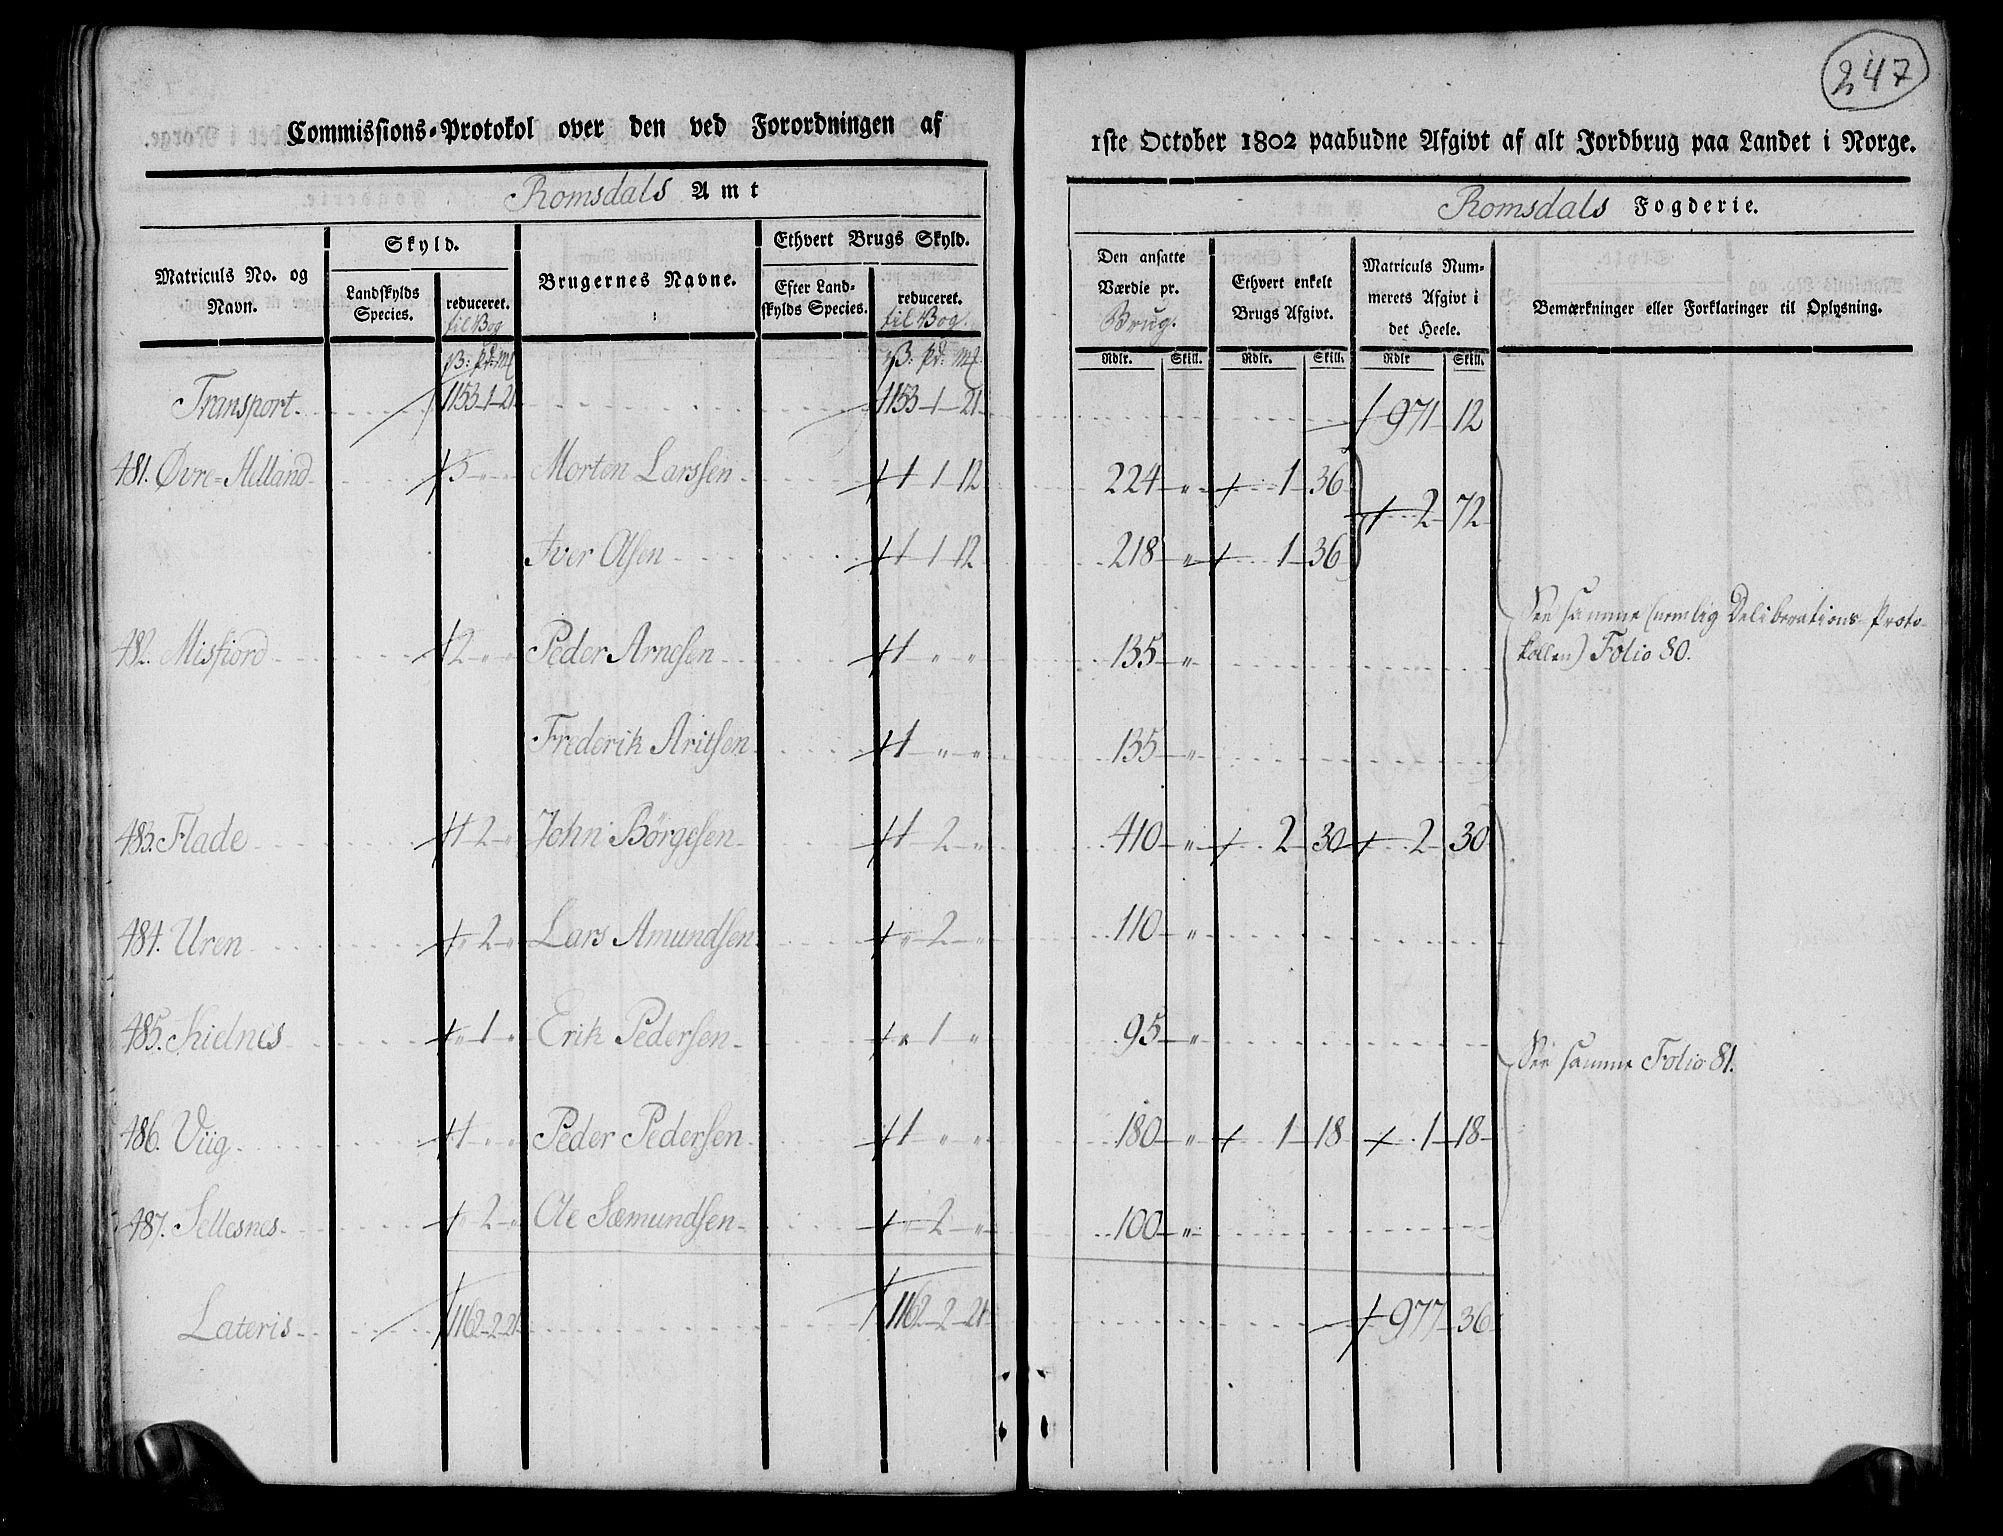 247
Commissions-Protokol over den ved Forordningen af
1ste October 1802 paabudne Afgivt af alt Jordbrug paa Landet i Norge.
Romsdals Amt
Romsdals Fogderie.
Matriculs No. og Navn.
Skyld.
Landskylds Species.
reduceret.
til Bog
Brugernes Navne.
Ethvert Brugs Skyld.
Efter Landskylds Species.
reduceret.
til Bog
Den ansatte Værdie pr.
Brug.
Ethvert enkelt Brugs Afgivt.
Matriculs Nummerets Afgivt i det Heele.
Bemærkninger eller Forklaringer til Oplysning.
Rdlr. Skill. Rdlr. Skill. Rdlr Skill.
Transport. 1153-1-21 1153-1-21 971 12
481. Øvre-Helland 3 " " Morten Larssen 1 1 12 224 " 1 36 2 72
Iver Olsen 1 1 12 218 " 1 36
482. Misfiord 2 " " Peder Arnesen 1 " " 135 "
See samme (nemlig Deliberations Proto-
kollen) Folio 80.
Frederik Aritsen 1 " " 135 "
483. Flade 1 2 " John Börgesen 1 2 " 410 " 2 30 2 30
484. Uren " 2 " Lars Amundsen " 2 " 110 "
485. Kielnes " 1 " Erik Pedersen " 1 " 95 "
See samme Folio 81.
486. Viig 1 " " Peder Pedersen 1 " " 180 " 1 18 1 18
487. Sellesnes " 2 " Ole Sæmundsen " 2 " 100 "
Lateris 1162-2-21 1162-2-21 977 36